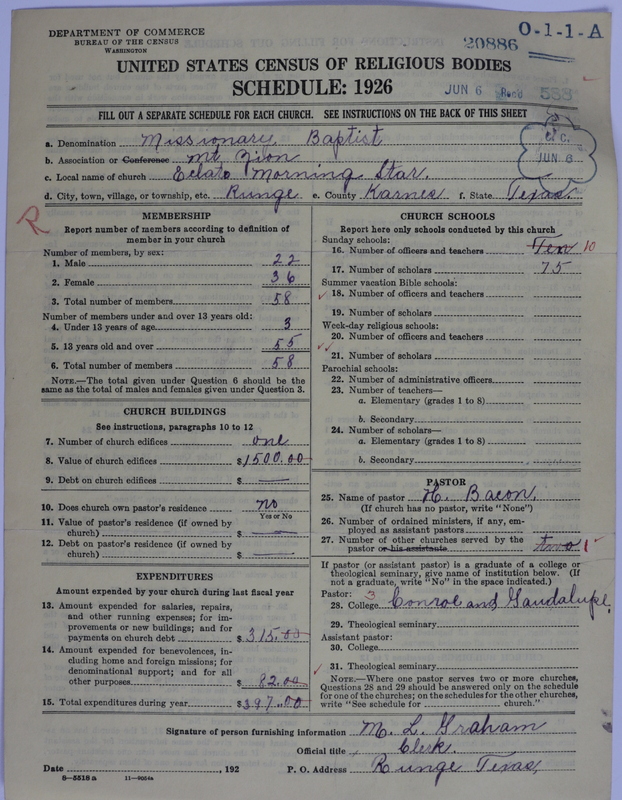 DEPARTMENT OF COMMERCE
BUREAU OF THE CENSUS
WASHINGTON
20886
O-1-1-A
UNITED STATES CENSUS OF RELIGIOUS BODIES
SCHEDULE: 1926
JUN 6 Rec'd 558
FILL OUT A SEPARATE SCHEDULE FOR EACH CHURCH. SEE INSTRUCTIONS ON THE BACK OF THIS SHEET
a. Denomination Missionary Baptist
b. Association or Conference Mt. Zion
c. Local name of church Eclato Morning Star.
JUN 6
d. City, town, village, or township, etc. Runge e. County Karnes f. State Texas.
R
MEMBERSHIP
Report number of members according to definition of
member in your church
Number of members, by sex:
1. Male 22
2. Female 36
3. Total number of members 58
Number of members under and over 13 years old:
4. Under 13 years of age 3
5. 13 years old and over 55
6. Total number of members 58
NOTE.—The total given under Question 6 should be the
same as the total of males and females given under Question 3.
CHURCH BUILDINGS
See instructions, paragraphs 10 to 12
7. Number of church edifices one
8. Value of church edifices $1500.00
9. Debt on church edifices $ —
10. Does church own pastor's residence no
Yes or No
11. Value of pastor's residence (if owned by
church) $ —
12. Debt on pastor's residence (if owned by
church) $ —
EXPENDITURES
Amount expended by your church during last fiscal year
13. Amount expended for salaries, repairs,
and other running expenses; for im-
provements or new buildings; and for
payments on church debt $315.00
14. Amount expended for benevolences, in-
cluding home and foreign missions; for
denominational support; and for all
other purposes $82.00
15. Total expenditures during year $397.00
CHURCH SCHOOLS
Report here only schools conducted by this church
Sunday schools:
16. Number of officers and teachers Ten 10
17. Number of scholars 75
Summer vacation Bible schools:
18. Number of officers and teachers
19. Number of scholars
Week-day religious schools:
20. Number of officers and teachers
21. Number of scholars
Parochial schools:
22. Number of administrative officers
23. Number of teachers—
a. Elementary (grades 1 to 8)
b. Secondary
24. Number of scholars—
a. Elementary (grades 1 to 8)
b. Secondary
PASTOR
25. Name of pastor H. Bacon.
(If church has no pastor, write "None")
26. Number of ordained ministers, if any, em-
ployed as assistant pastors
27. Number of other churches served by the
pastor or his assistants two 1
If pastor (or assistant pastor) is a graduate of a college or
theological seminary, give name of institution below. (If
not a graduate, write "No" in the space indicated.)
Pastor: 3
28. College Conroe and Gaudalupe,
29. Theological seminary
Assistant pastor:
30. College
31. Theological seminary
NOTE.—Where one pastor serves two or more churches,
Questions 28 and 29 should be answered only on the schedule
for one of the churches; on the schedules for the other churches,
write "See schedule for church."
Signature of person furnishing information M. L. Graham
Official title Clerk.
Date , 192 P. O. Address Runge Texas,
8-5518 a 11-9054a